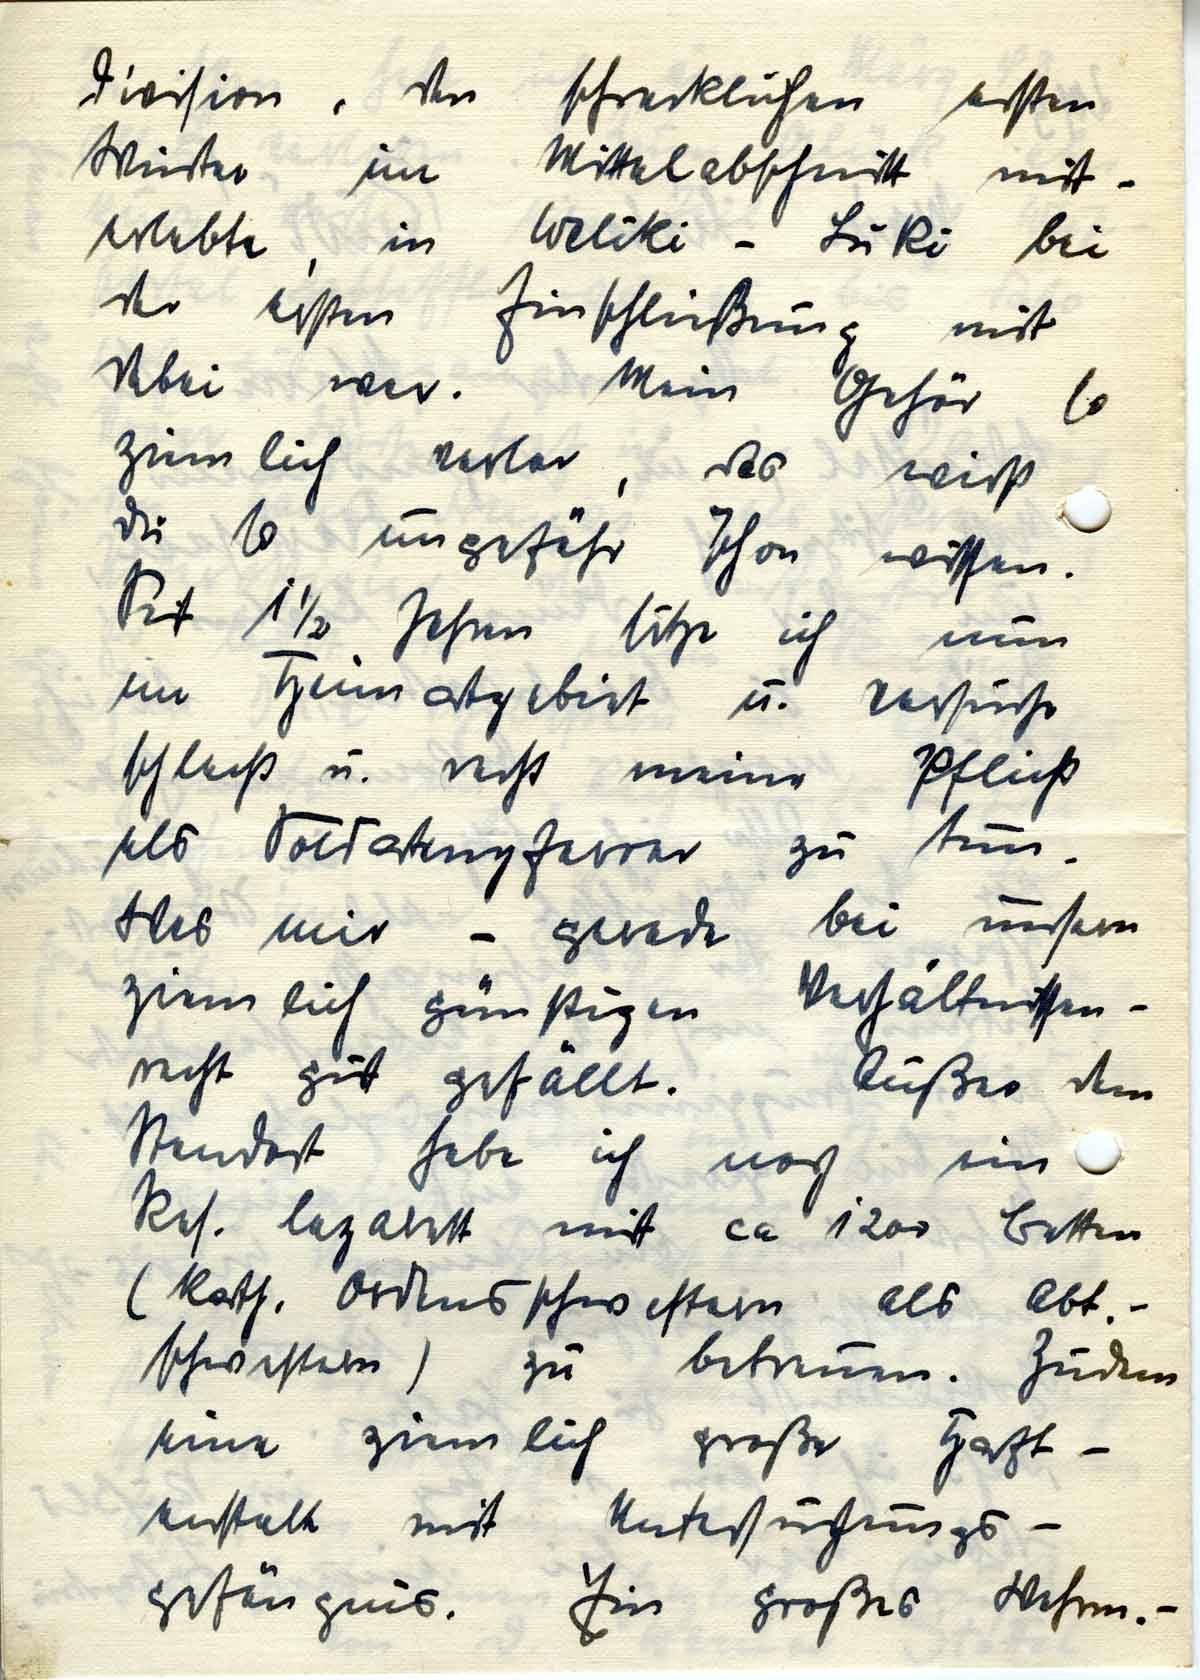 Division, den schrecklichen ersten
Winter im Mittelabschnitt mit-
erlebte, in Weliki-Luki bei
der ersten Einschließung mit
dabei war. Mein Gehör so
ziemlich verlor, das wirst
du so ungefähr schon wissen.
Seit 1 1/2 Jahren sitze ich nun
im Heimatgebiet u. versuche
schlecht u. recht meine Pflicht
als Soldatenpfarrer zu tun.
Was mir - gerade bei unsern
ziemlich günstigen Verhältnissen -
recht gut gefällt. Außer dem
Standort habe ich noch ein
Res. lazarett mit ca 1200 Betten
(Kath. Ordensschwestern als Abt.-
schwestern) zu betreuen. Zudem
eine ziemlich große Haft-
anstalt mit Untersuchungs-
gefängnis. Ein großes Wehrm.-